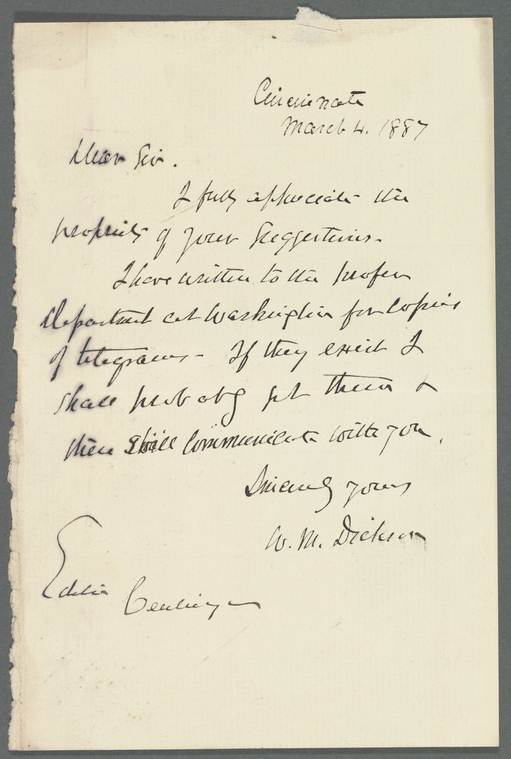 Cincinnati
March 4. 1887
Dear Sir.
I fully appreciate the
propriety of your suggestions.
I have written to the proper
Department at Washington for copies
of telegrams - If they exist I
shall probably get them &
then shall communicate with you.
Sincerely yours
W. M. Dickson
Editor Century